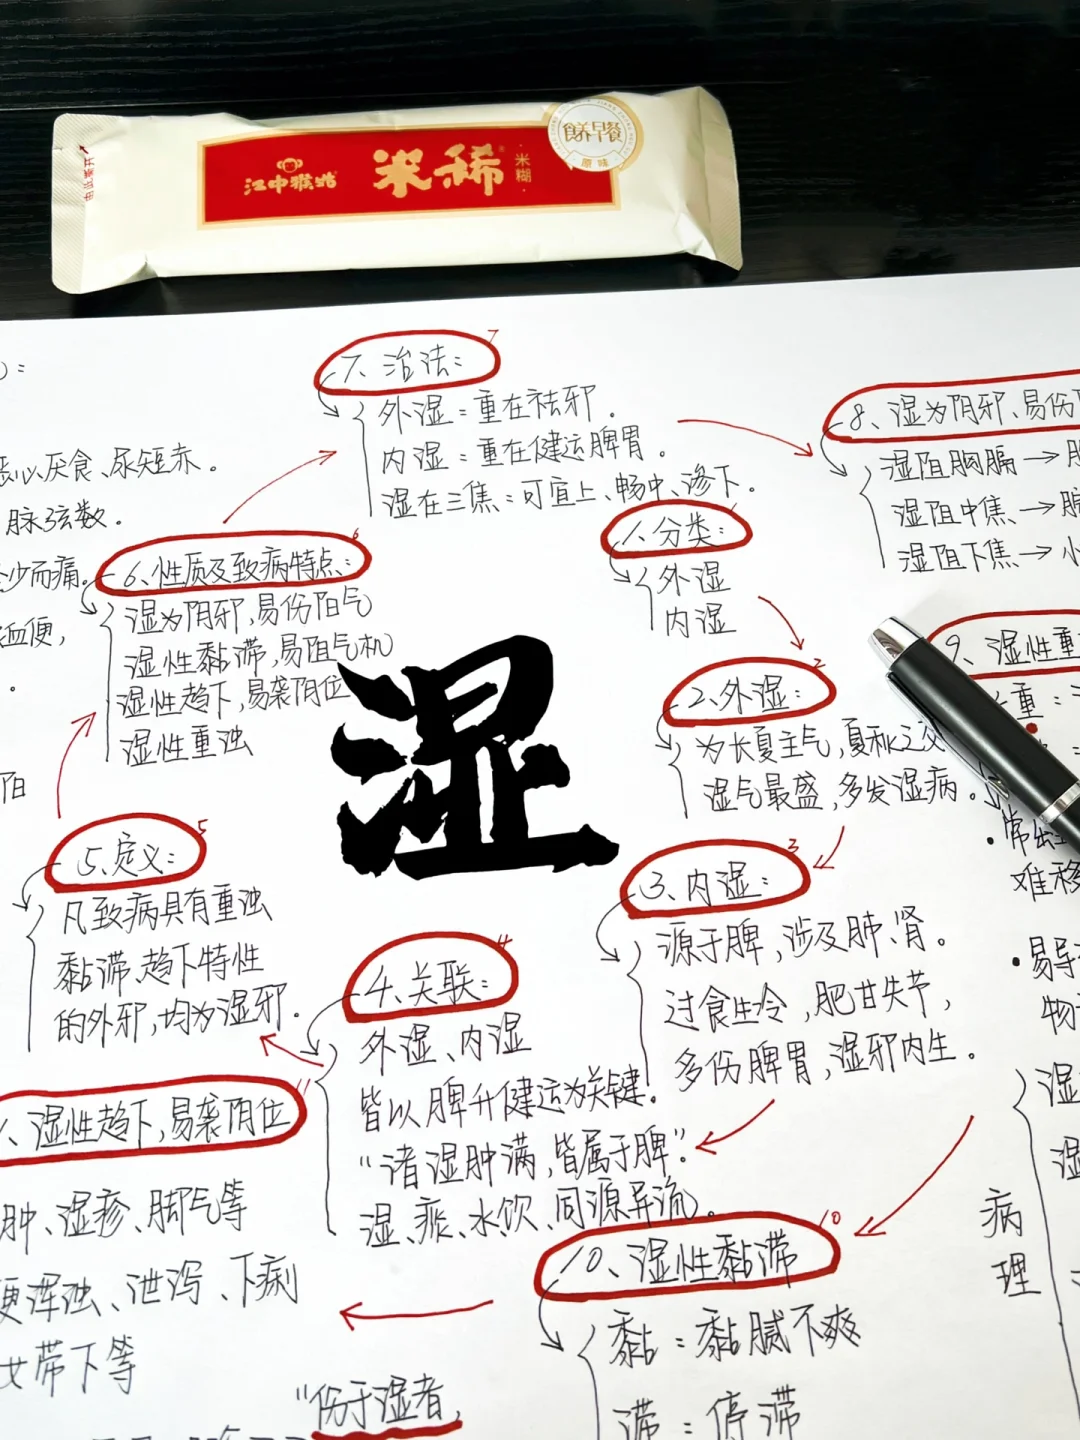 由此撕开
江中猴姑
米稀
米糊
食养早餐
原味
7、治法：
外湿：重在祛邪。
内湿：重在健运脾胃。
湿在三焦：可宣上、畅中、渗下。
恶心厌食、尿短赤。
脉弦数。
少而痛。
血便，
8、湿为阴邪、易伤
湿阻胸膈→
湿阻中焦→
湿阻下焦→
1、分类：
外湿
内湿
2、外湿：
为长夏主气，夏秋之交
湿气最盛，多发湿病。
3、内湿：
源于脾，涉及肺、肾。
过食生冷，肥甘失节，
多伤脾胃，湿邪内生。
4、关联：
外湿、内湿
皆以脾升健运为关键！
“诸湿肿满，皆属于脾”。
湿、痰、水饮、同源异流。
5、定义：
凡致病具有重浊
黏滞、趋下特性
的外邪，均为湿邪.
6、性质及致病特点：
湿为阴邪，易伤阳气
湿性黏滞，易阻气机
湿性趋下，易袭阴位
湿性重浊
湿
9、湿性重
重：
常出
难移
易导
物
湿
湿
病理
10、湿性黏滞
黏：黏腻不爽
滞：停滞
、湿性趋下，易袭阴位
肿、湿疹、脚气等
便浑浊、泄泻、下痢
女带下等
“伤于湿者，